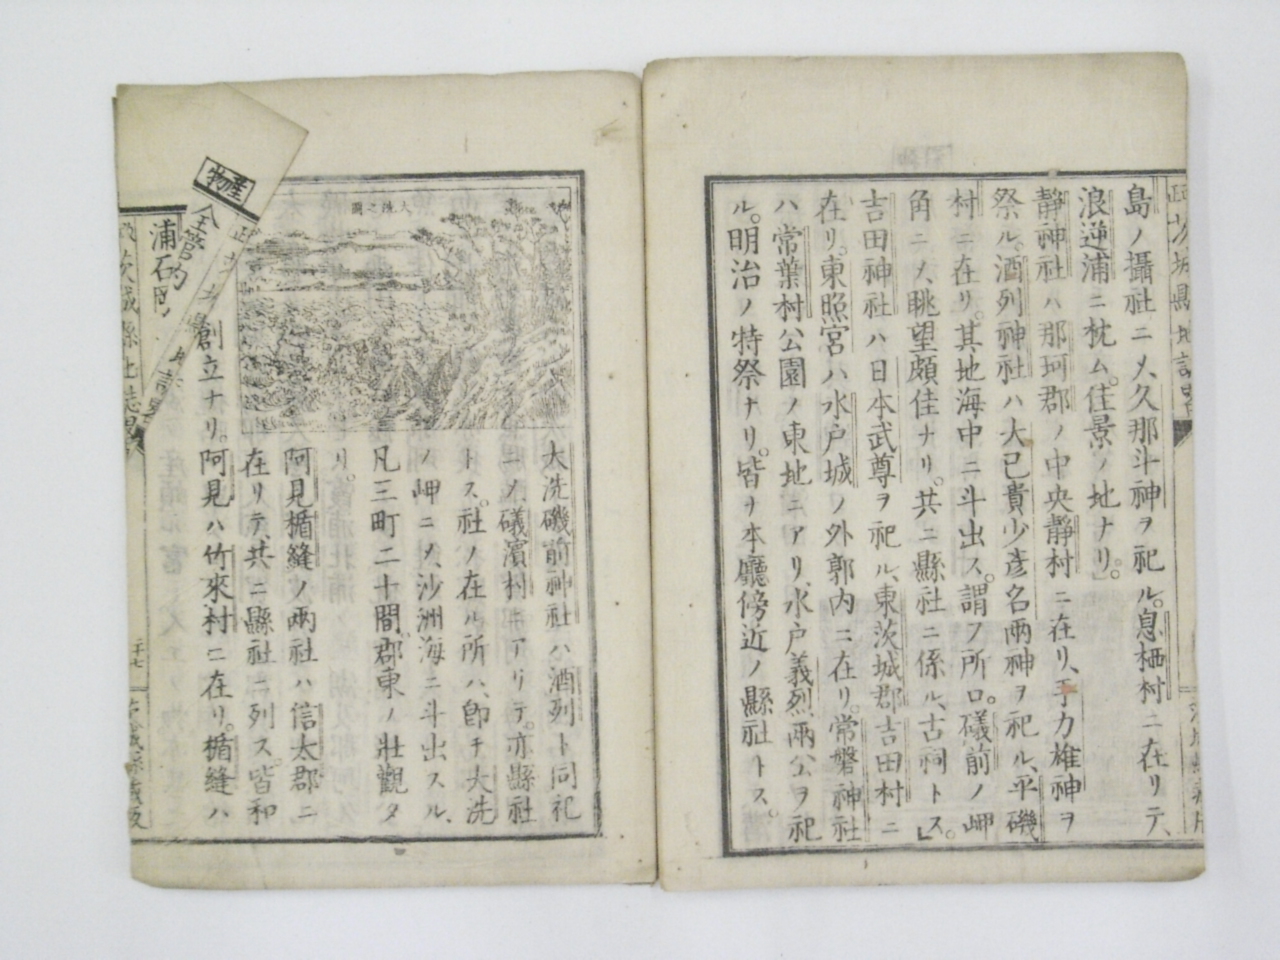 島ノ攝社ニメ久那斗神ヲ祀ル。息栖村ニ在リテ、
浪逆浦ニ枕ム。佳景ノ地ナリ。
靜神社ハ那珂郡ノ中央靜村ニ在リ、手力雄神ヲ
祭ル。酒列神社ハ大己貴少彦名兩神ヲ祀ル、平磯
村ニ在リ。其地海中ニ斗出ス。謂フ所ロ。礒前ノ岬
角ニメ、眺望頗佳ナリ。共ニ縣社ニ係ル、古祠トス。」
吉田神社ハ日本武尊ヲ祀ル、東茨城郡吉田村ニ
在リ。東照宮ハ水戸城ノ外郭内ニ在リ。常磐神社
ハ常葉村公園ノ東地ニアリ、水戸義烈兩公ヲ祀
ル。明治ノ特祭ナリ。皆ナ本廳傍近ノ縣社トス。
大洗之圖
大洗磯前神社ハ酒列ト同祀
ニメ、礒濱村ニアリテ。亦縣社
トス。社ノ在ル所ハ、卽チ大洗
ノ岬ニメ、沙洲海ニ斗出スル、
凡三町二十間。郡東ノ壯觀タ
リ。
阿見楯縫ノ兩社ハ信太郡ニ
在リテ、共ニ縣社ニ列ス。皆和
創立ナリ。阿見ハ竹來村ニ在リ。楯縫ハ
物産
全管内
浦石
茨城縣地誌略
二十七